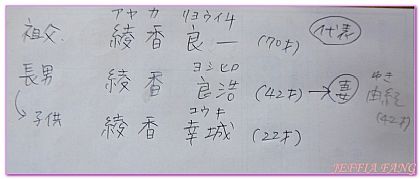 アヤカ リョウイチ
祖父. 綾香 良一 (70才) 代表
ヨシヒロ ゆき
長男 綾香 良浩 (42才) → 妻 由紀 (42才)
コウキ
子供 綾香 幸城 (22才)
JEFFIA FANG